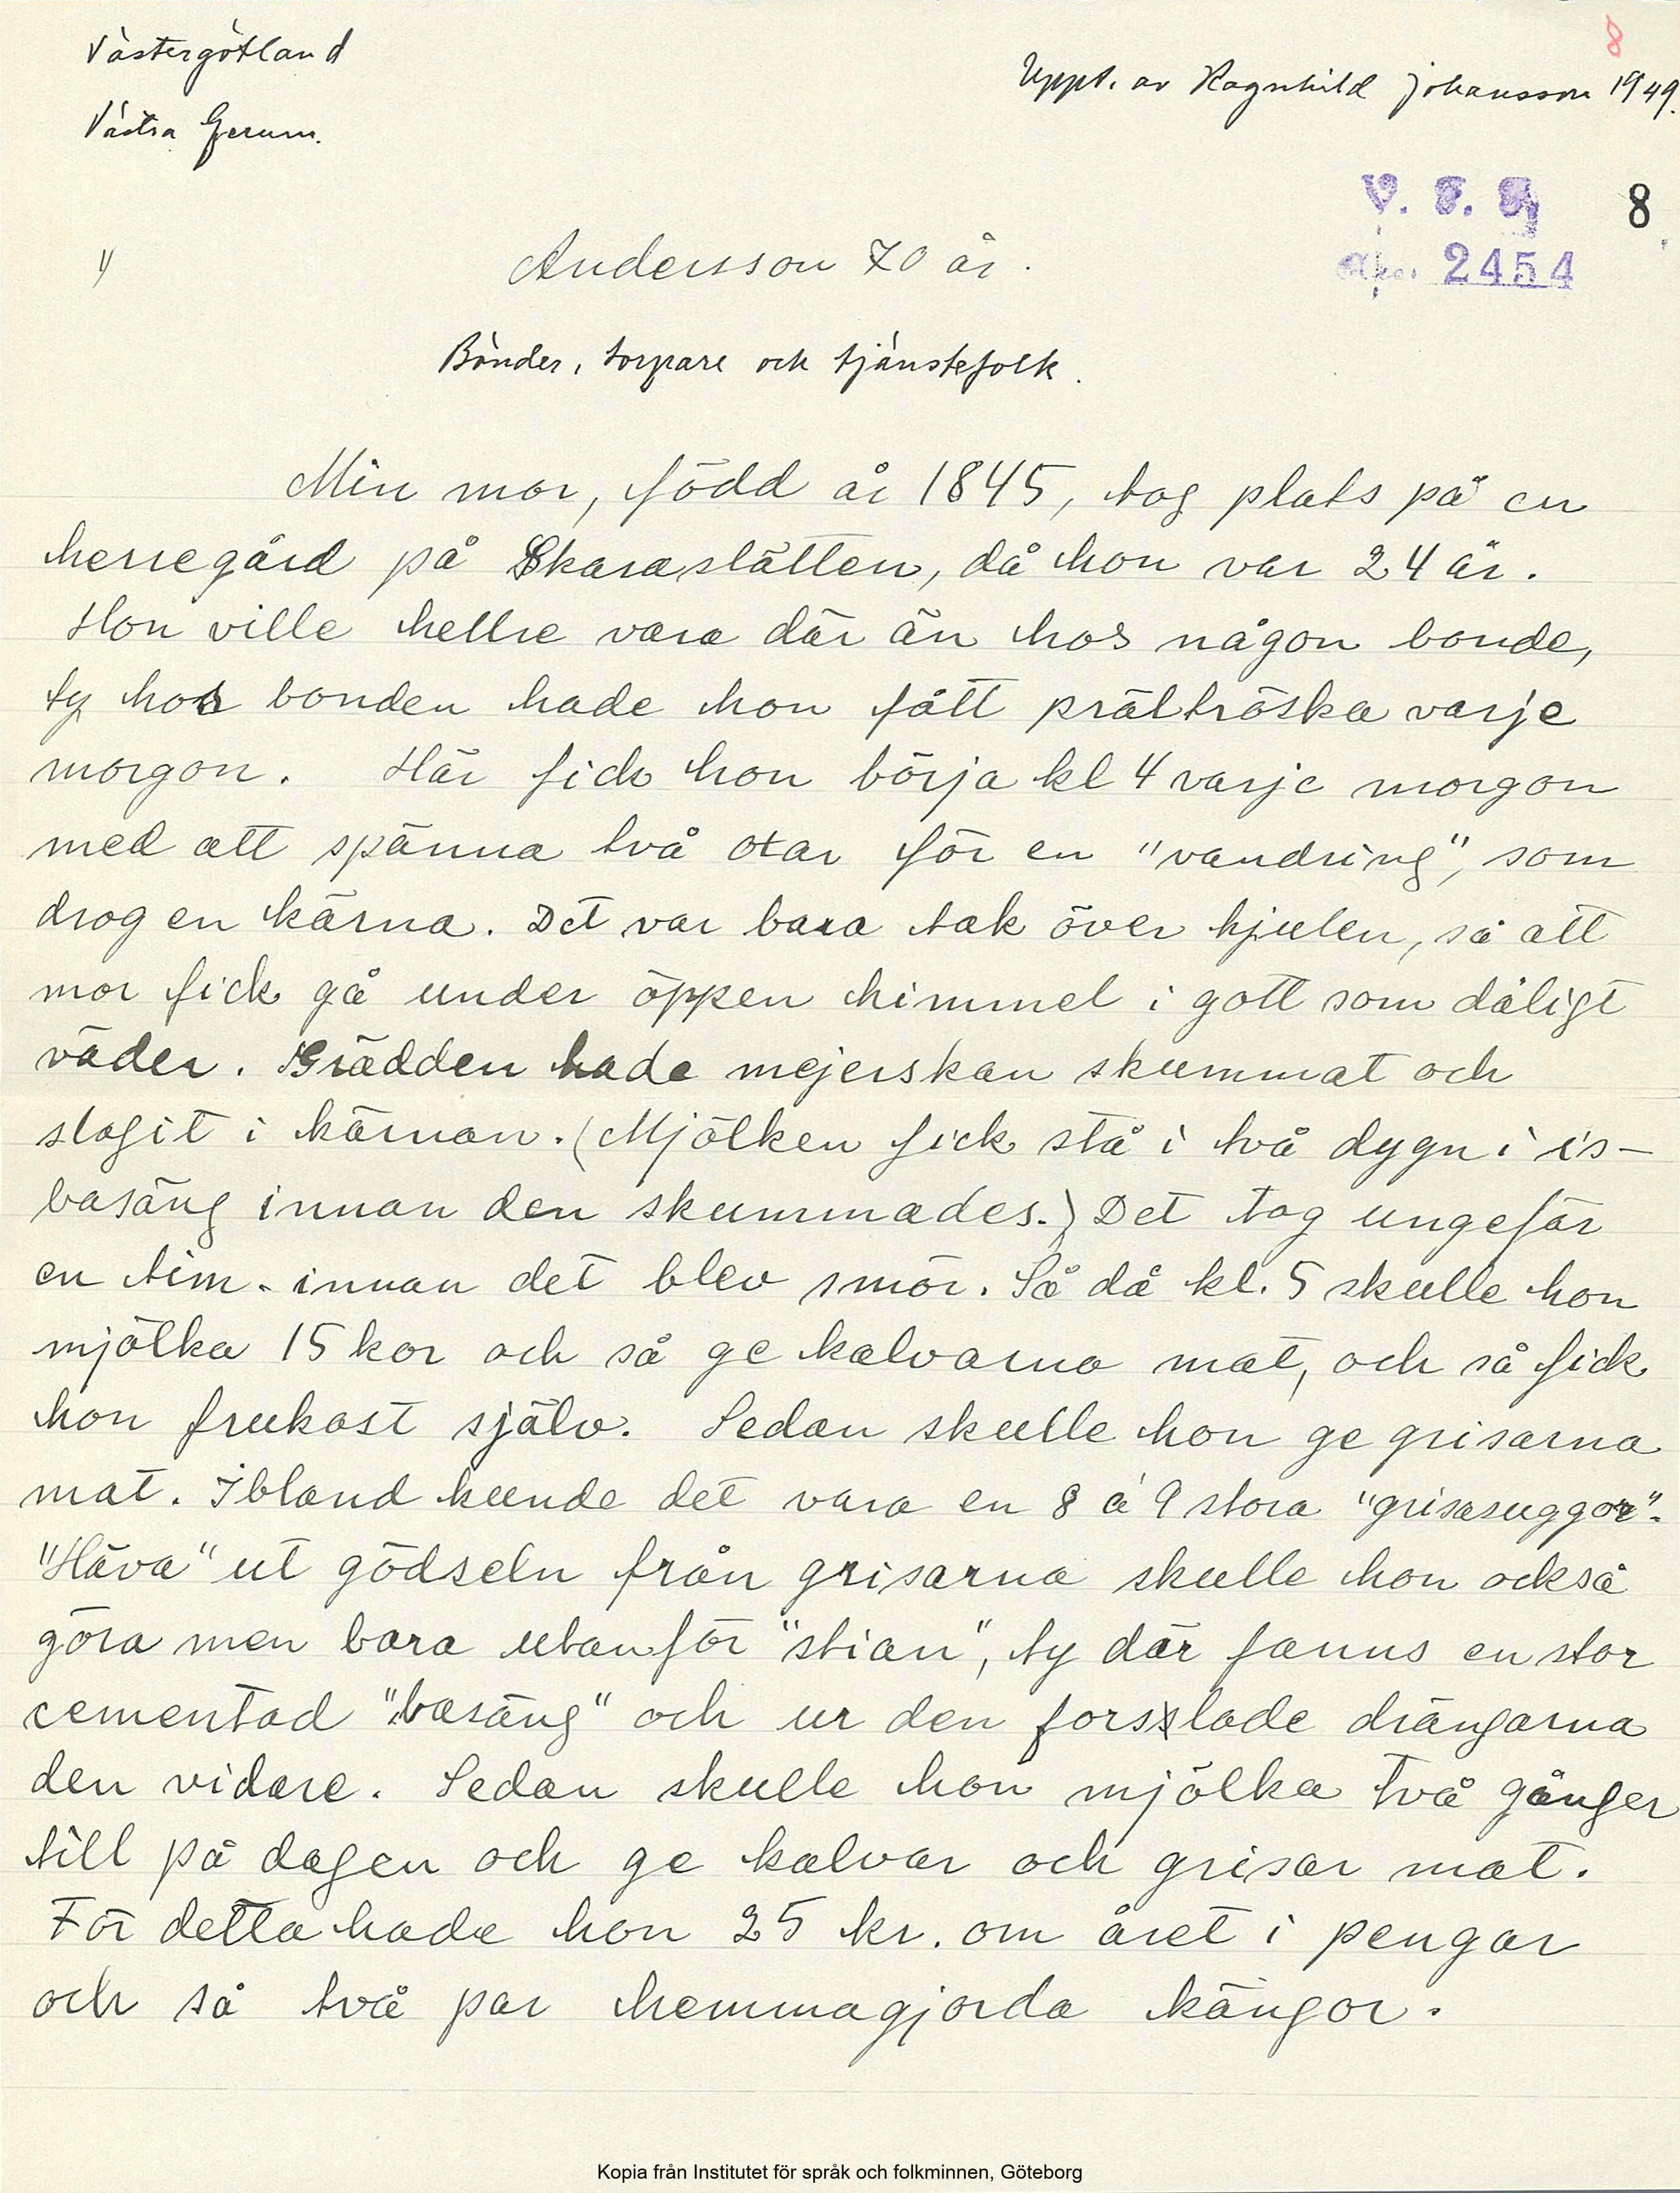 8
Västergötland
Uppt. av Ragnhild Johansson 1949.
Västra Gerum.
V. F. 8
2454
Andersson 70 år.
Bönder, torpare och tjänstefolk.
Min mor, född år 1845, tog plats på en
herregård på Skaraslätten, då hon var 24 år.
Hon ville hellre vara där än hos någon bonde,
ty hos bonden hade hon fått prältröska varje
morgon. Här fick hon börja kl 4 varje morgon
med att spänna två oxar för en "vandring", som
drog en kärna. Det var bara tak över hjulen, så att
mor fick gå under öppen himmel i gott som dåligt
väder. Grädden hade mejerskan skummat och
slagit i kärnan. (Mjölken fick stå i två dygn i is-
basäng innan den skummades.) Det tog ungefär
en tim. innan det blev smör. Så då kl. 5 skulle hon
mjölka 15 kor och så ge kalvarna mat, och så fick
hon frukost själv. Sedan skulle hon ge grisarna
mat. Ibland kunde det vara en 8 à 9 stora "grisasuggor".
"Häva" ut gödseln från grisarna skulle hon också
göra men bara utanför "stian", ty där fanns en stor
cementad "basäng" och ur den forslade drängarna
den vidare. Sedan skulle hon mjölka två gånger
till på dagen och ge kalvar och grisar mat.
För detta hade hon 25 kr. om året i pengar
och så två par hemmagjorda kängor.
Kopia från Institutet för språk och folkminnen, Göteborg